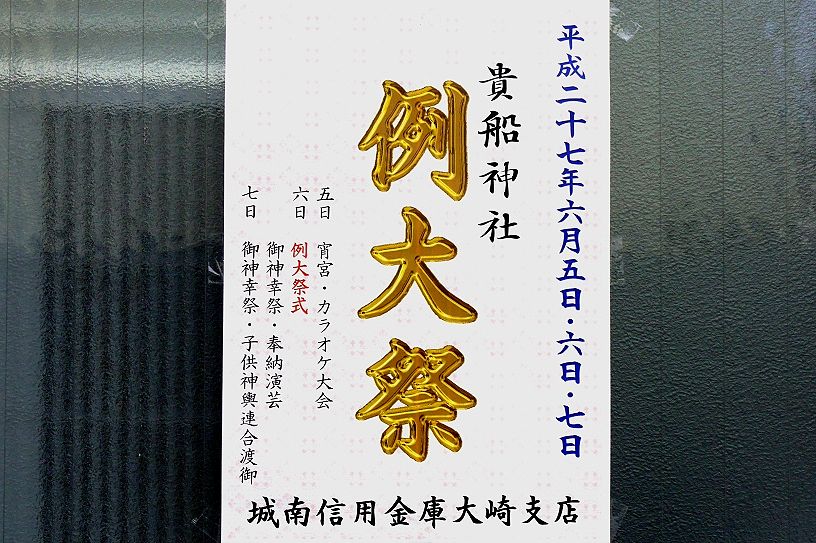 平成二十七年六月五日・六日・七日
貴船神社
例大祭
五日 宵宮・カラオケ大会
六日 例大祭式
御神幸祭・奉納演芸
七日 御神幸祭・子供神輿連合渡御
城南信用金庫大崎支店